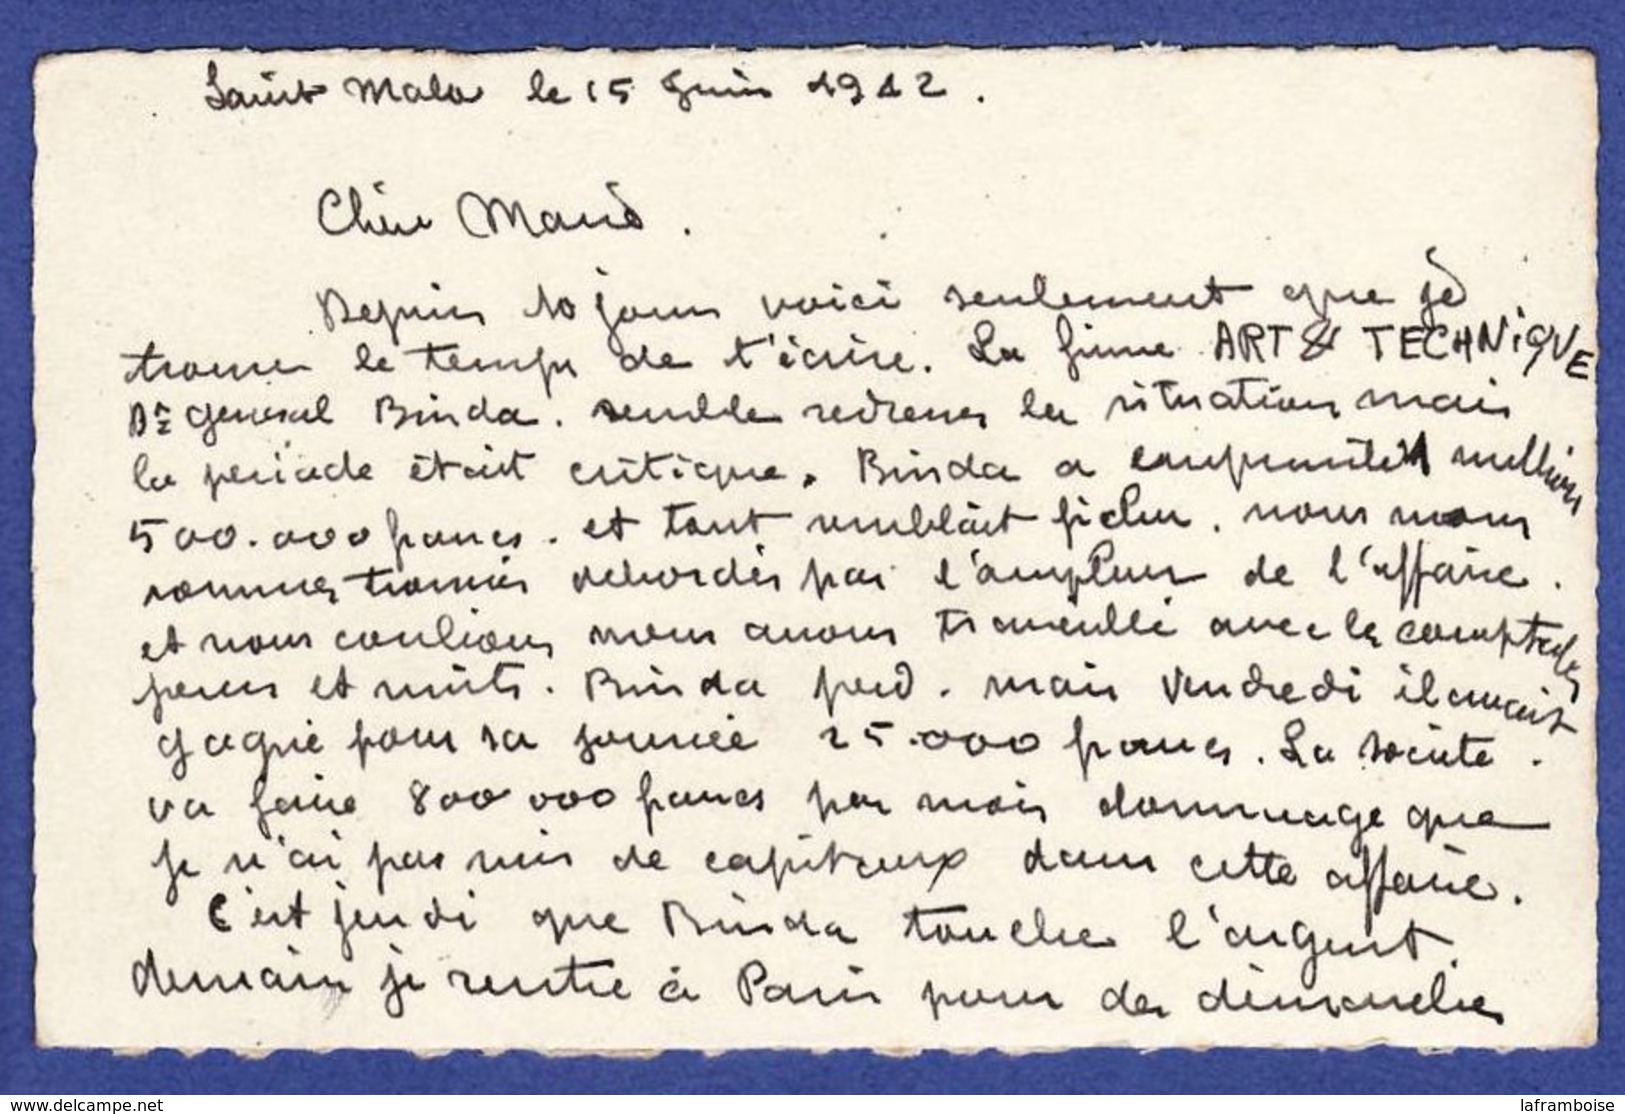 Saint Malo le 15 Juin 1942.
Chère Marie.
Depuis 10 jours voici seulement que je
trouve le temps de t'écrire. La firme ART & TECHNIQUE
Dr général Binda. semble redresser la situation mais
la periode était critique. Binda a emprunté 1 million
500.000 francs. et tout semblait fichu. nous nous
sommes trouvés débordés par l'ampleur de l'affaire.
et nous coulions nous avons travaillé avec les comptables
jours et nuits. Binda perd. mais Vendredi il avait
gagné pour sa journée 25.000 francs. La société.
va faire 800 000 francs par mois dommage que
je n'ai pas mis de capitaux dans cette affaire.
C'est jeudi que Binda touche l'argent.
demain je rentre à Paris pour des démarches
www.delcampe.net
laframboise